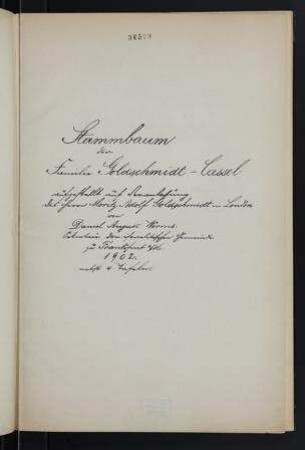 Stammbaum
der
Familie Goldschmidt-Cassel
aufgestellt auf Veranlassung
des Herrn Moritz Adolf Goldschmidt in London
von
Daniel August Worms
Sekretair der Israelitischen Gemeinde
zu Frankfurt a/M.
1902.
nebst 4 Tafeln.